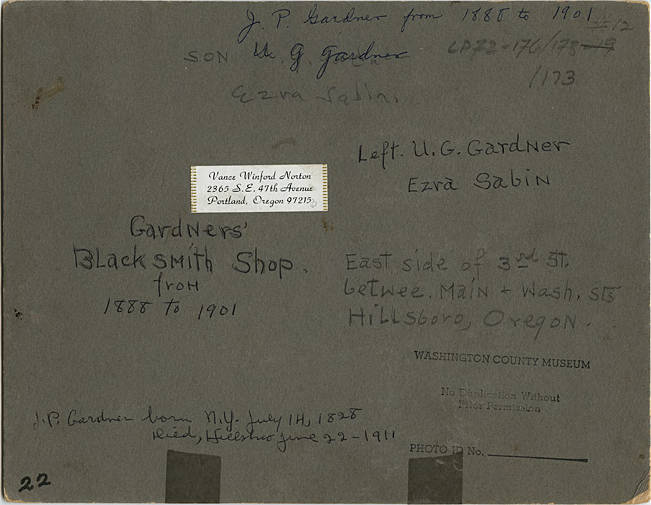 J. P. Gardner from 1888 to 1901
SON U. G. Gardner
LP72-176/173
/173
Ezra Sabin.
Left. U. G. Gardner
Ezra Sabin
Vance Winford Norton
2365 S. E. 47th Avenue
Portland, Oregon 97215
Gardners'
Blacksmith Shop.
from
1888 to 1901
East side of 3rd St.
betwee. Main + Wash. sts
Hillsboro, Oregon.
WASHINGTON COUNTY MUSEUM
No Duplication Without
Prior Permission
J. P. Gardner born N.Y. July 14, 1828
Died, Hillsboro June 22-1911
PHOTO ID No.
22